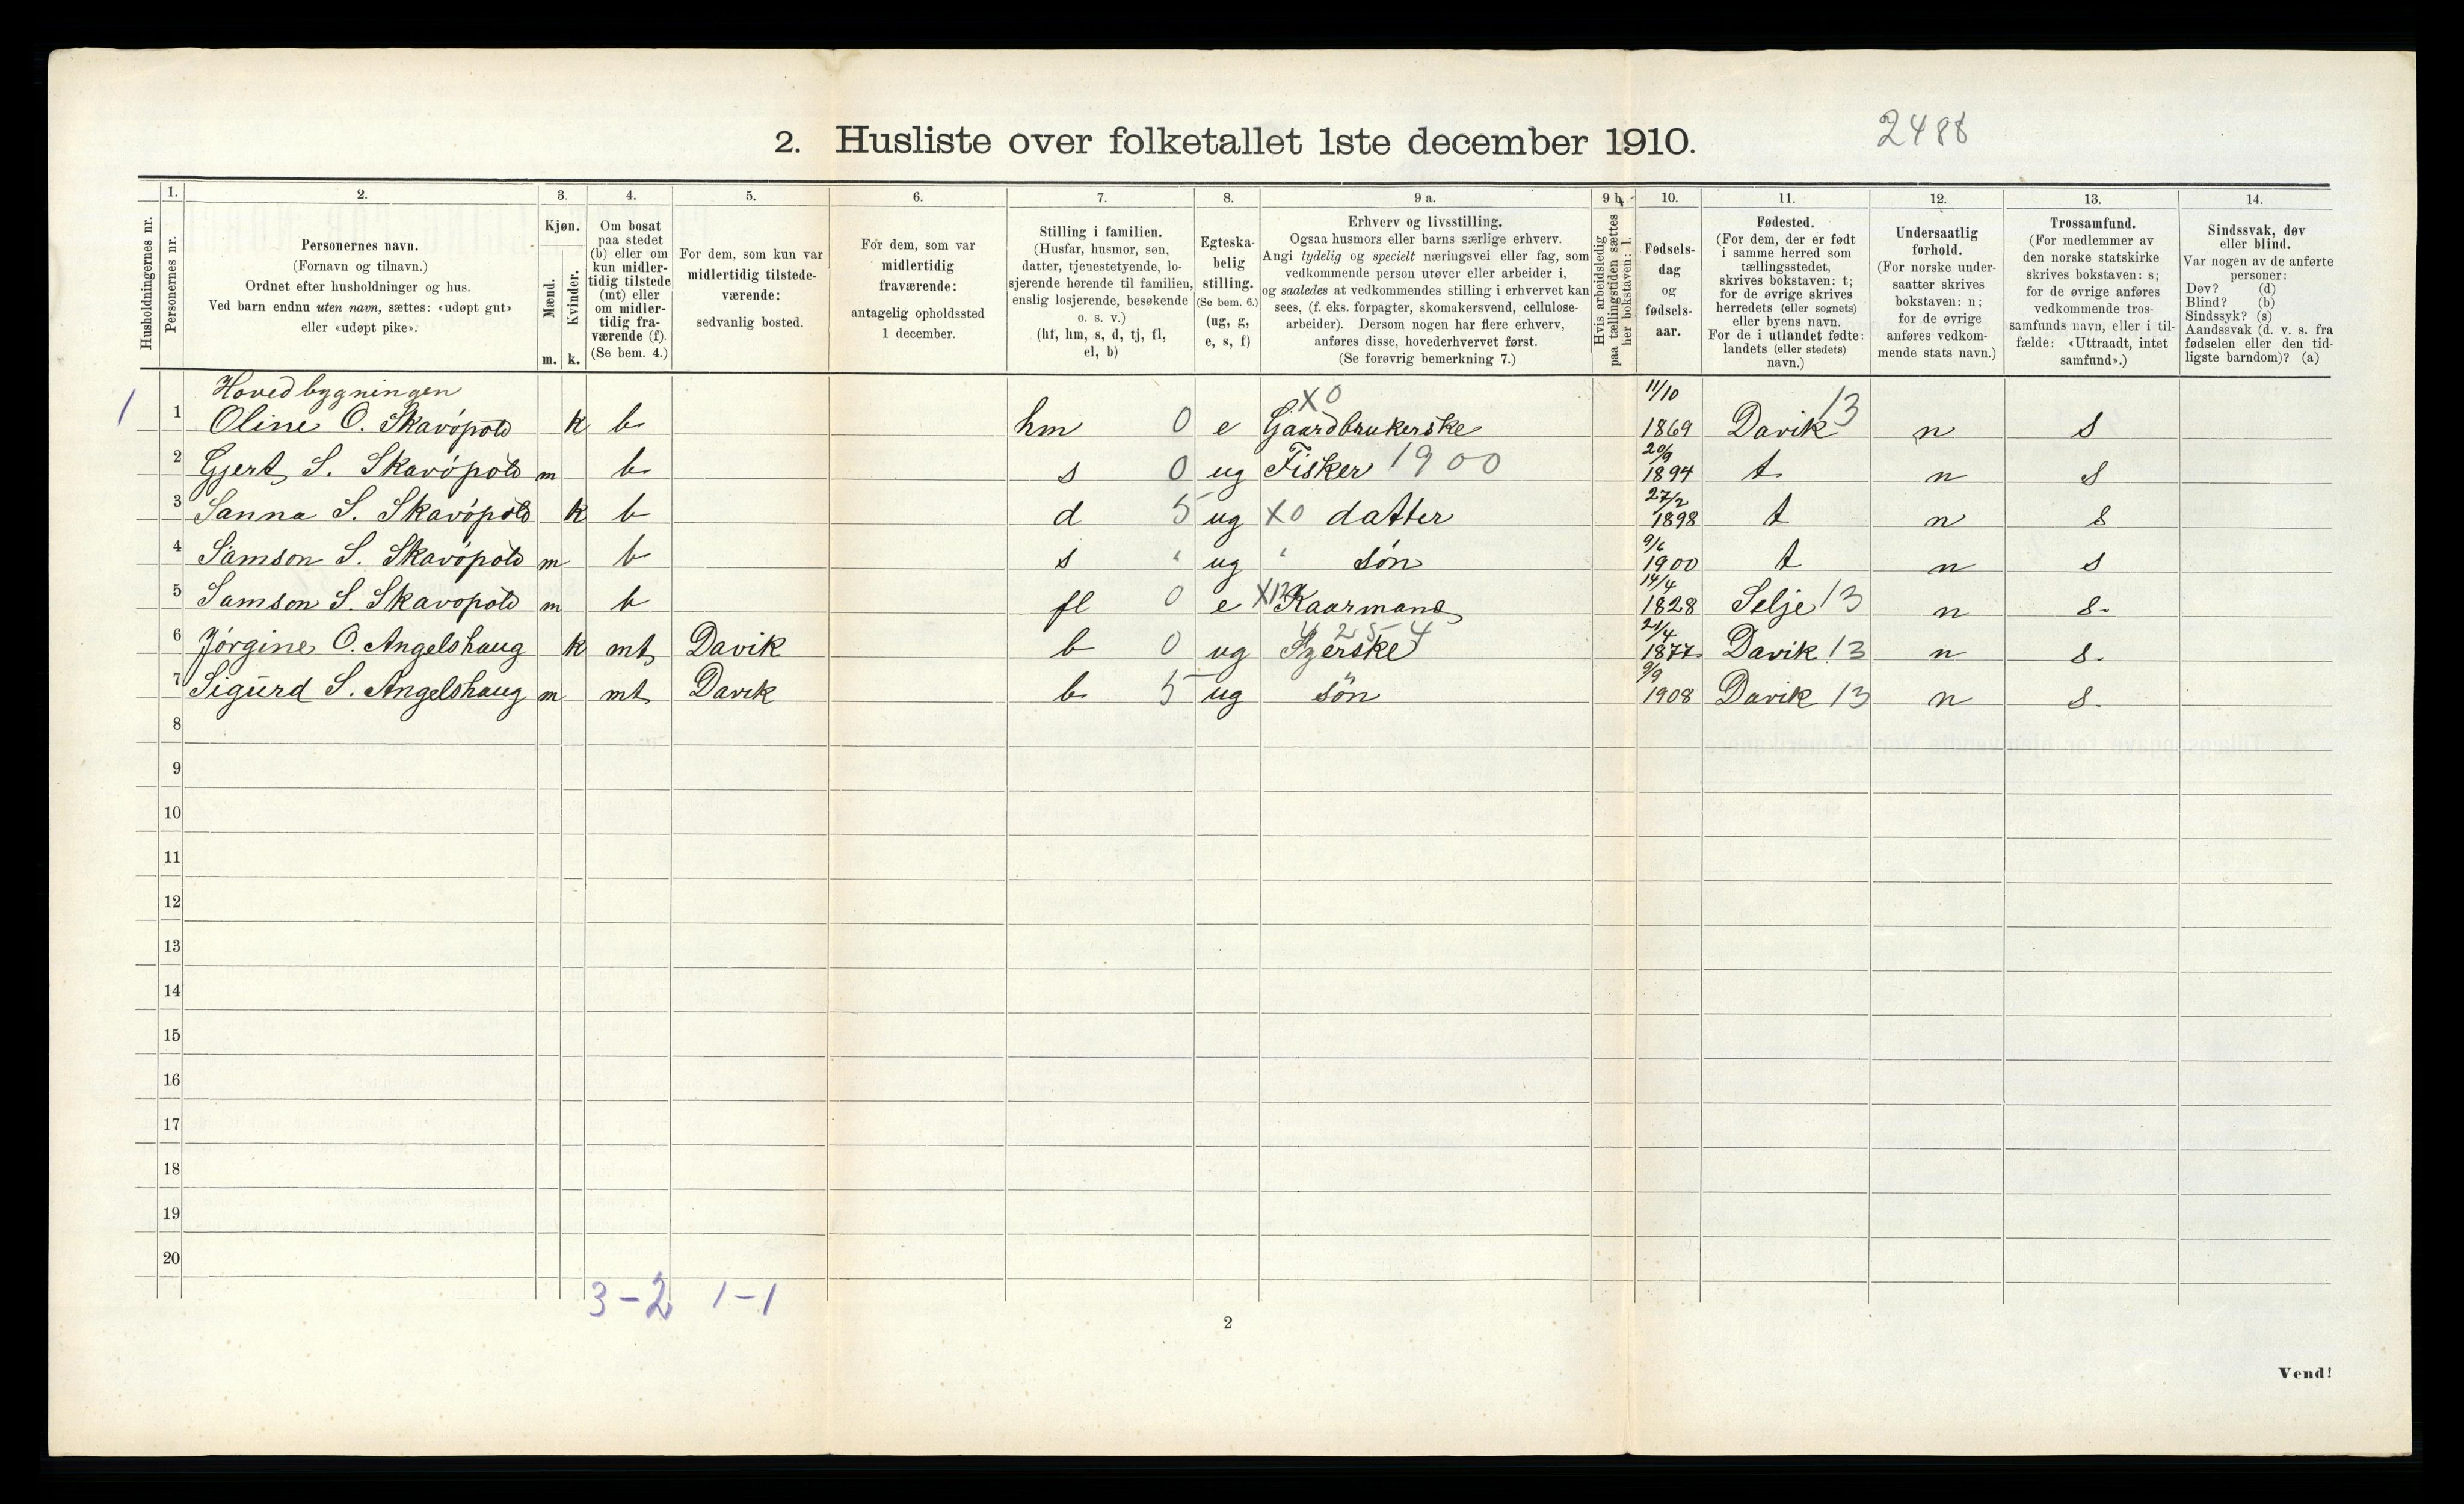 2. Husliste over folketallet 1ste december 1910.
2488
Husholdningernes nr.
1.
Personernes nr.
2.
Personernes navn.
(Fornavn og tilnavn.)
Ordnet efter husholdninger og hus.
Ved barn endnu uten navn, sættes: «udøpt gut»
eller «udøpt pike».
3.
Kjøn.
Mænd.
Kvinder.
m. k.
4.
Om bosat
paa stedet
(b) eller om
kun midler-
tidig tilstede
(mt) eller
om midler-
tidig fra-
værende (f).
(Se bem. 4.)
5.
For dem, som kun var
midlertidig tilstede-
værende:
sedvanlig bosted.
6.
For dem, som var
midlertidig
fraværende:
antagelig opholdssted
1 december.
7.
Stilling i familien.
(Husfar, husmor, søn,
datter, tjenestetyende, lo-
sjerende hørende til familien,
enslig losjerende, besøkende
o. s. v.)
(hf, hm, s, d, tj, fl,
el, b)
8.
Egteska-
belig
stilling.
(Se bem. 6.)
(ug, g,
e, s, f)
9 a.
Erhverv og livsstilling.
Ogsaa husmors eller barns særlige erhverv.
Angi tydelig og specielt næringsvei eller fag, som
vedkommende person utøver eller arbeider i,
og saaledes at vedkommendes stilling i erhvervet kan
sees, (f. eks. forpagter, skomakersvend, cellulose-
arbeider). Dersom nogen har flere erhverv,
anføres disse, hovederhvervet først.
(Se forøvrig bemerkning 7.)
9 b.
Hvis arbeidsledig
paa tællingstiden sættes
her bokstaven: l.
10.
Fødsels-
dag
og
fødsels-
aar.
11.
Fødested.
(For dem, der er født
i samme herred som
tællingsstedet,
skrives bokstaven: t;
for de øvrige skrives
herredets (eller sognets)
eller byens navn.
For de i utlandet fødte:
landets (eller stedets)
navn.)
12.
Undersaatlig
forhold.
(For norske under-
saatter skrives
bokstaven: n;
for de øvrige
anføres vedkom-
mende stats navn.)
13.
Trossamfund.
(For medlemmer av
den norske statskirke
skrives bokstaven: s;
for de øvrige anføres
vedkommende tros-
samfunds navn, eller i til-
fælde: «Uttraadt, intet
samfund».)
14.
Sindssvak, døv
eller blind.
Var nogen av de anførte
personer:
Døv? (d)
Blind? (b)
Sindssyk? (s)
Aandssvak (d. v. s. fra
fødselen eller den tid-
ligste barndom)? (a)
Hovedbygningen
1 1 Oline O. Skavöpold k b hm 0 e X0 Gaardbrukerske 11/10 1869 Davik 13 n s
2 Gjert S. Skavöpold m b s 0 ug Fisker 1900 20/9 1894 t n s
3 Sanna S. Skavöpold k b d 5 ug X0 datter 27/2 1898 t n s
4 Samson S. Skavöpold m b s " ug " søn 9/6 1900 t n s
5 Samson S. Skavopold m b fl 0 e Kaarmand 14/4 1828 Selje 13 n s.
6 Jörgine O. Angelshaug k mt Davik b 0 ug Syerske 21/4 1877 Davik 13 n s.
7 Sigurd S. Angelshaug m mt Davik b 5 ug sön 9/9 1908 Davik 13 n s.
8
9
10
11
12
13
14
15
16
17
18
19
20
3-2 1-1
2
Vend!